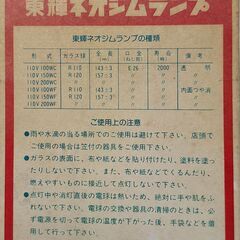 東輝ネオジムランプ
東輝ネオジムランプの種類
形式 ガラス球 全長(㎜) 口金(㎜) 寿命(時) 備考
110V 100WC R110 143±3 E26 2000 透明
110V 150WC R120 157±3
110V 200WC
110V 100WF R110 143±3 内面つや消
110V 150WF R120 157±3
110V 200WF
ご使用上の注意
●雨や水滴の当る場所でのご使用は避けて下さい。店頭で
ご使用の場合は笠付の器具をご使用下さい。
●ガラスの表面に、布や紙などを貼り付けたり、塗料を塗っ
たりしないで下さい。また、布や紙などでくるんだり、
燃えやすい物に近づけて使用しないで下さい。
●点灯中や消灯直後の電球は熱いため、絶対に手や肌をふ
れないで下さい。電球の交換や器具の清掃のときは、必
ず電源を切って電球の温度が下がった後、手袋などを着
用して行なって下さい。